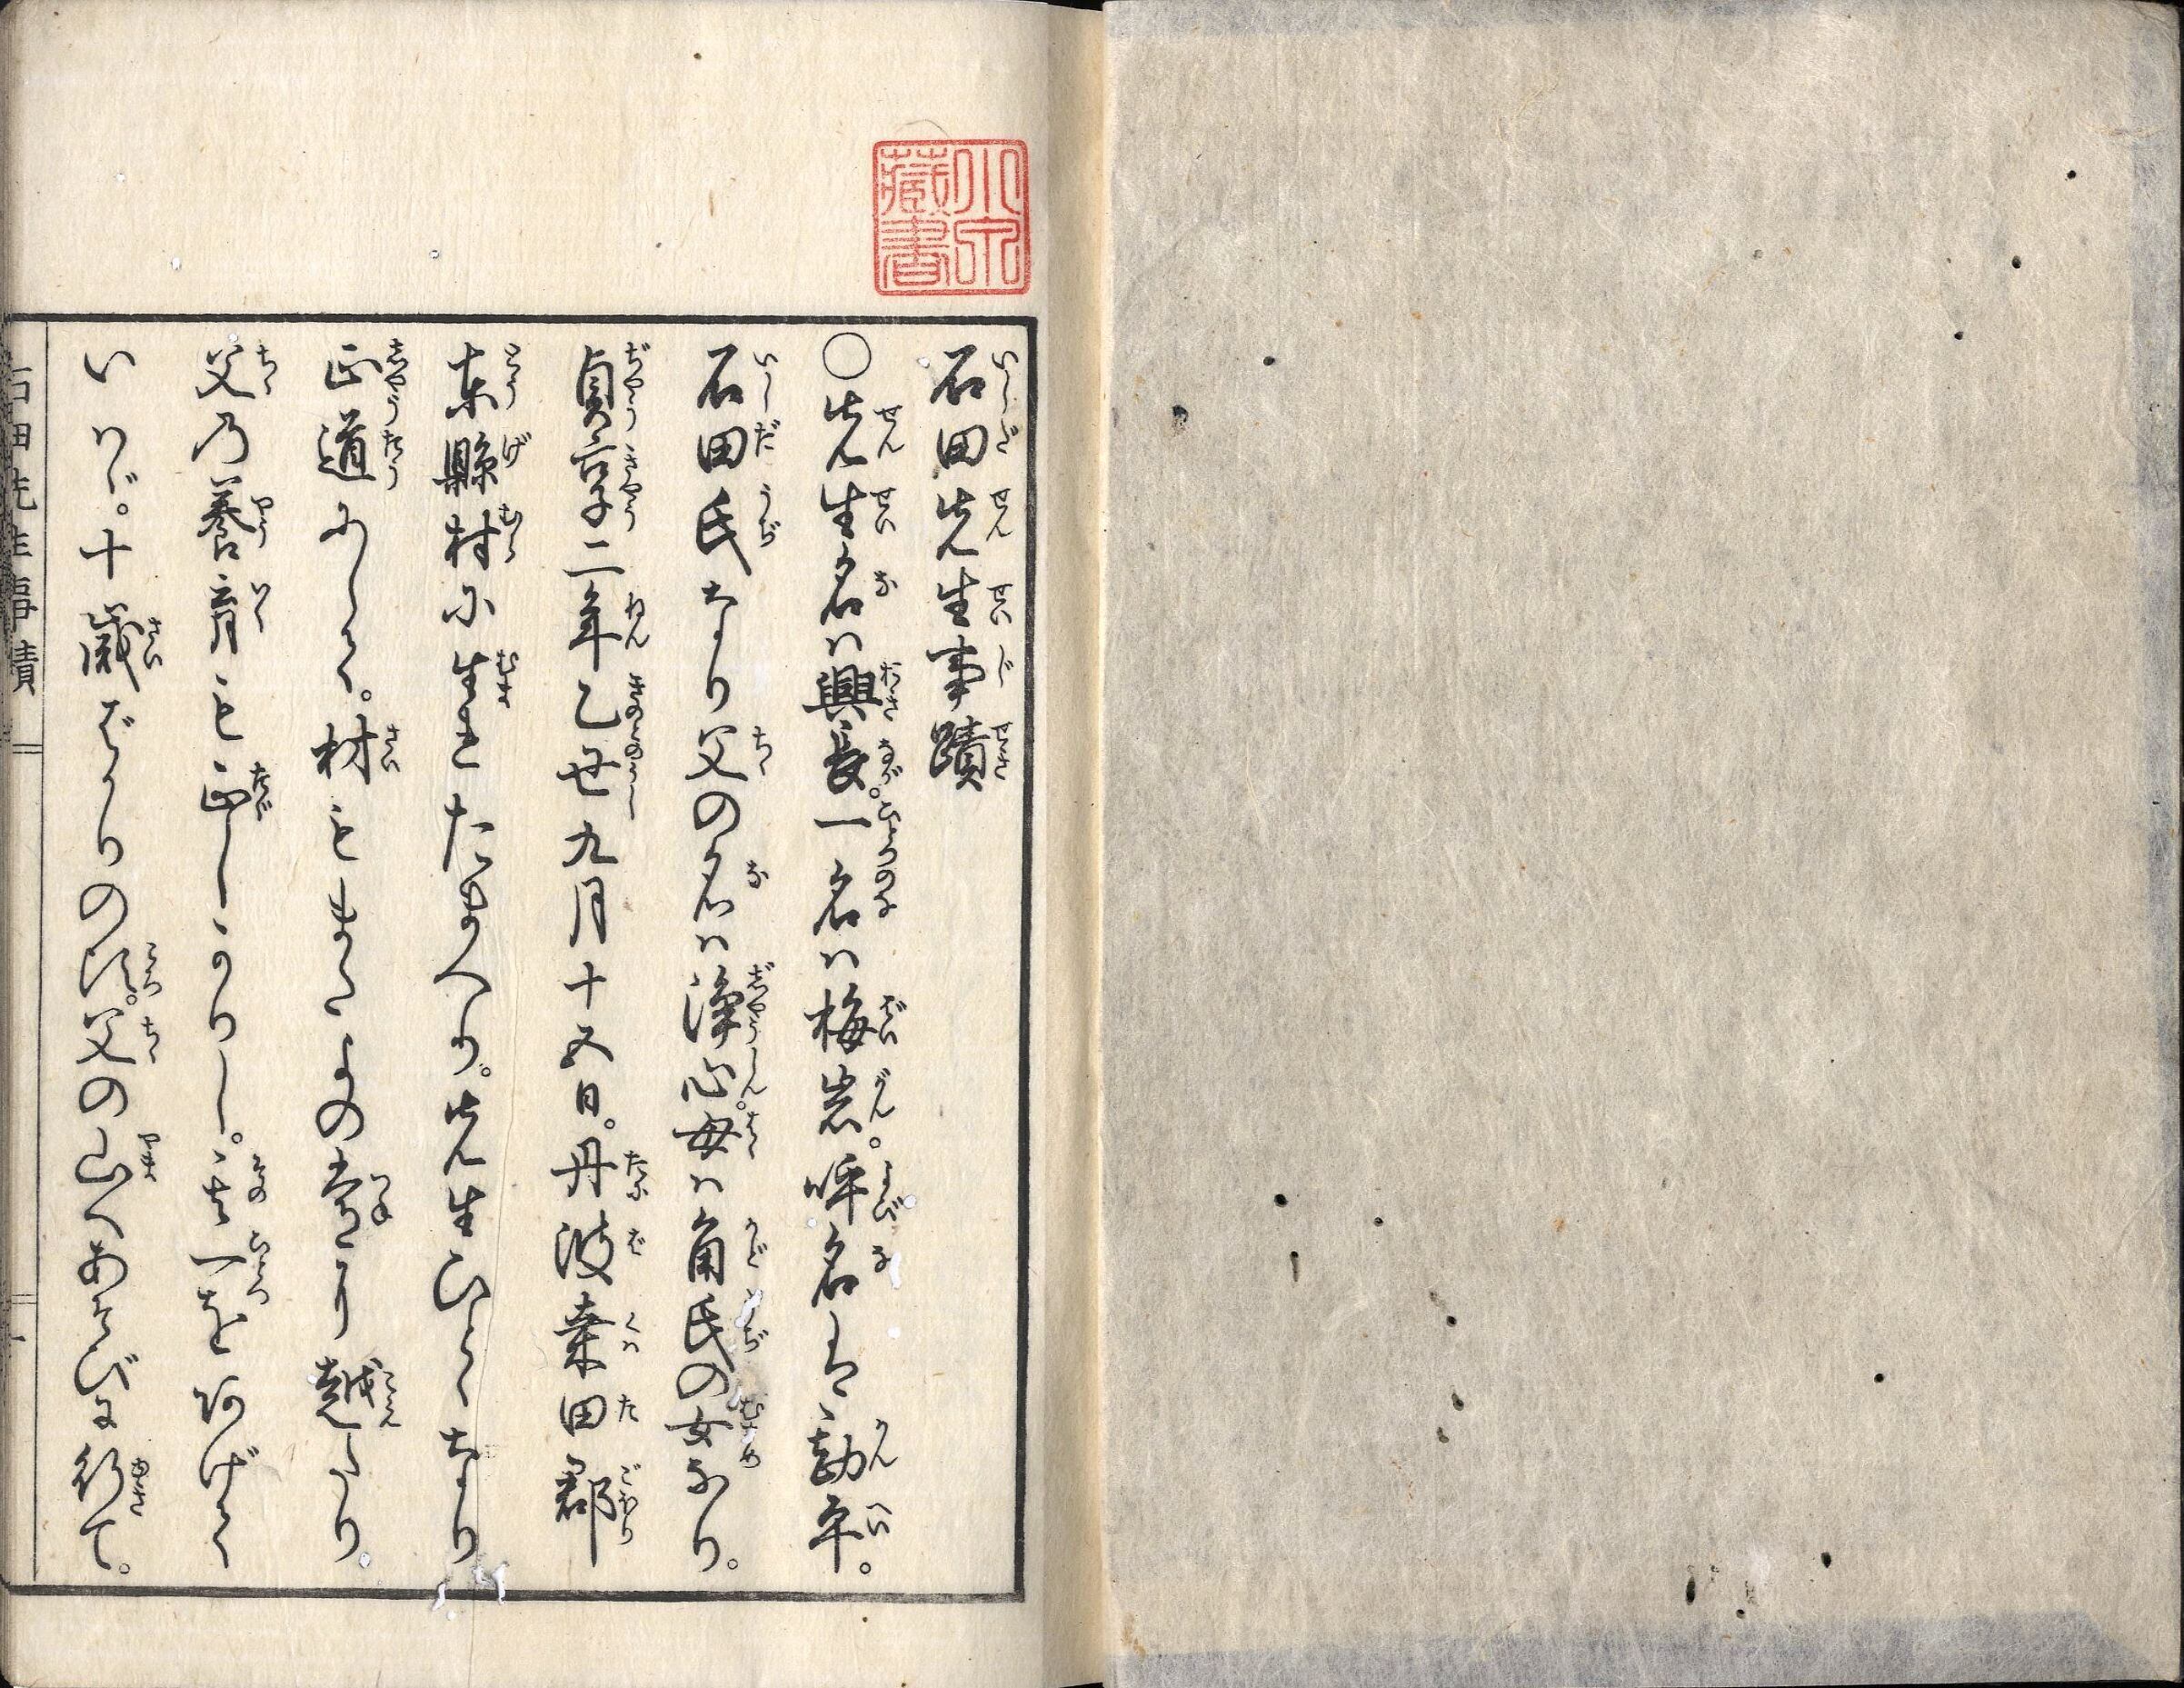 石田先生事蹟
○先生名ハ興長。一名ハ梅岩。呼名は勘平。
石田氏なり父の名ハ浄心。母ハ角氏の女なり。
貞享二年乙丑九月十五日。丹波桒田郡
東縣村に生れたまへり。先生ひとゝなり
正道にして。材も よの常より越たり。
父乃養育も正しかりし。其一をあげて
いハゞ。十歳ばかりの頃。父の山へあそびに行て。
石田先生事蹟 一
藏書